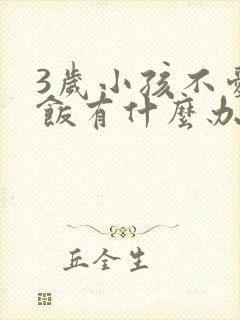 3歲小孩不愛
飯有什麼办
丘全生